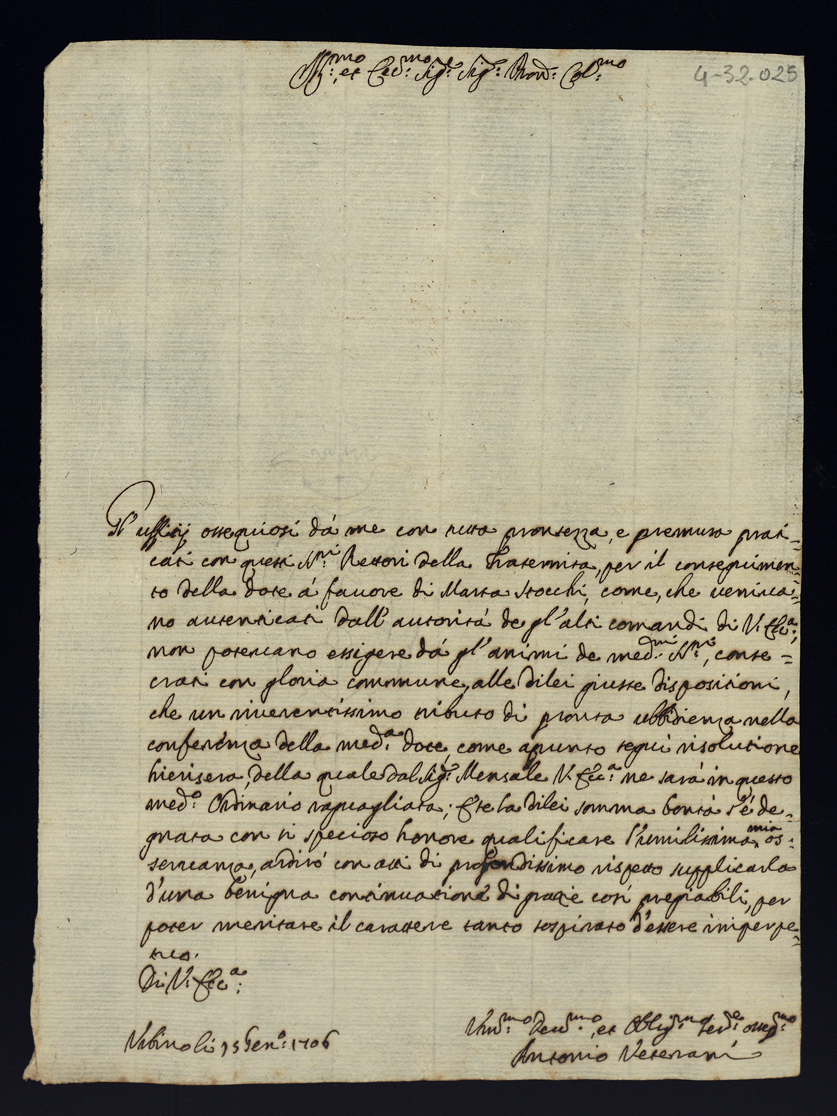 Ill:mo, et Ecc:mo Sig:re Sig:r Pron: Col:mo
4-32.025
Gl'ufficij ossequiosi dá me con tutta prontezza, e premura prati=
cati con questi SS:ri Rettori della Fraternita, per il conseguimen=
to della dote á favore di Marta Stocchi, come, che veniva=
no autenticati dall'autoritá de gl'alti comandi di V. Ecc:a,
non potevano essigere dá gl'animi de med:mi SS:ri, conse=
crati con gloria commune, alle dilei giuste disposizioni,
che un riverentissimo tributo di pronta ubbidienza nella
conferenza della med:a dote, come apunto seguì risolutione
hierisera, della quale dal Sig:r Mensale V. Ecc:a ne sará in questo
med:o Ordinario raguagliata; E se la dilei somma bontá s'é de=
gnata con sì specioso honore qualificare l'umilissima mia os=
servanza, ardiró con atti di profondissimo rispetto supplicarla
d'una benigna continuatione di grazie così pregiabili, per
poter meritare il carattere tanto sospirato d'essere in perpe=
tuo.
Di V. Ecc:a
Urbino li 15 Gen:o 1706
Um:mo Dev:mo, et Oblig:mo Serv:e osseq:mo
Antonio Veterani